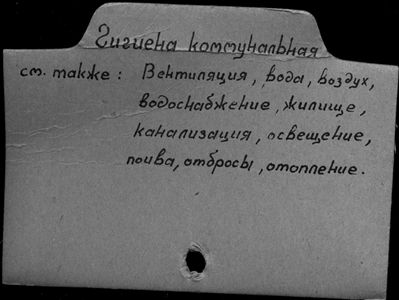 Гигиена коммунальная
см. также: Вентиляция, вода, воздух,
водоснабжение, жилище,
канализация, освещение,
почва, отбросы, отопление.